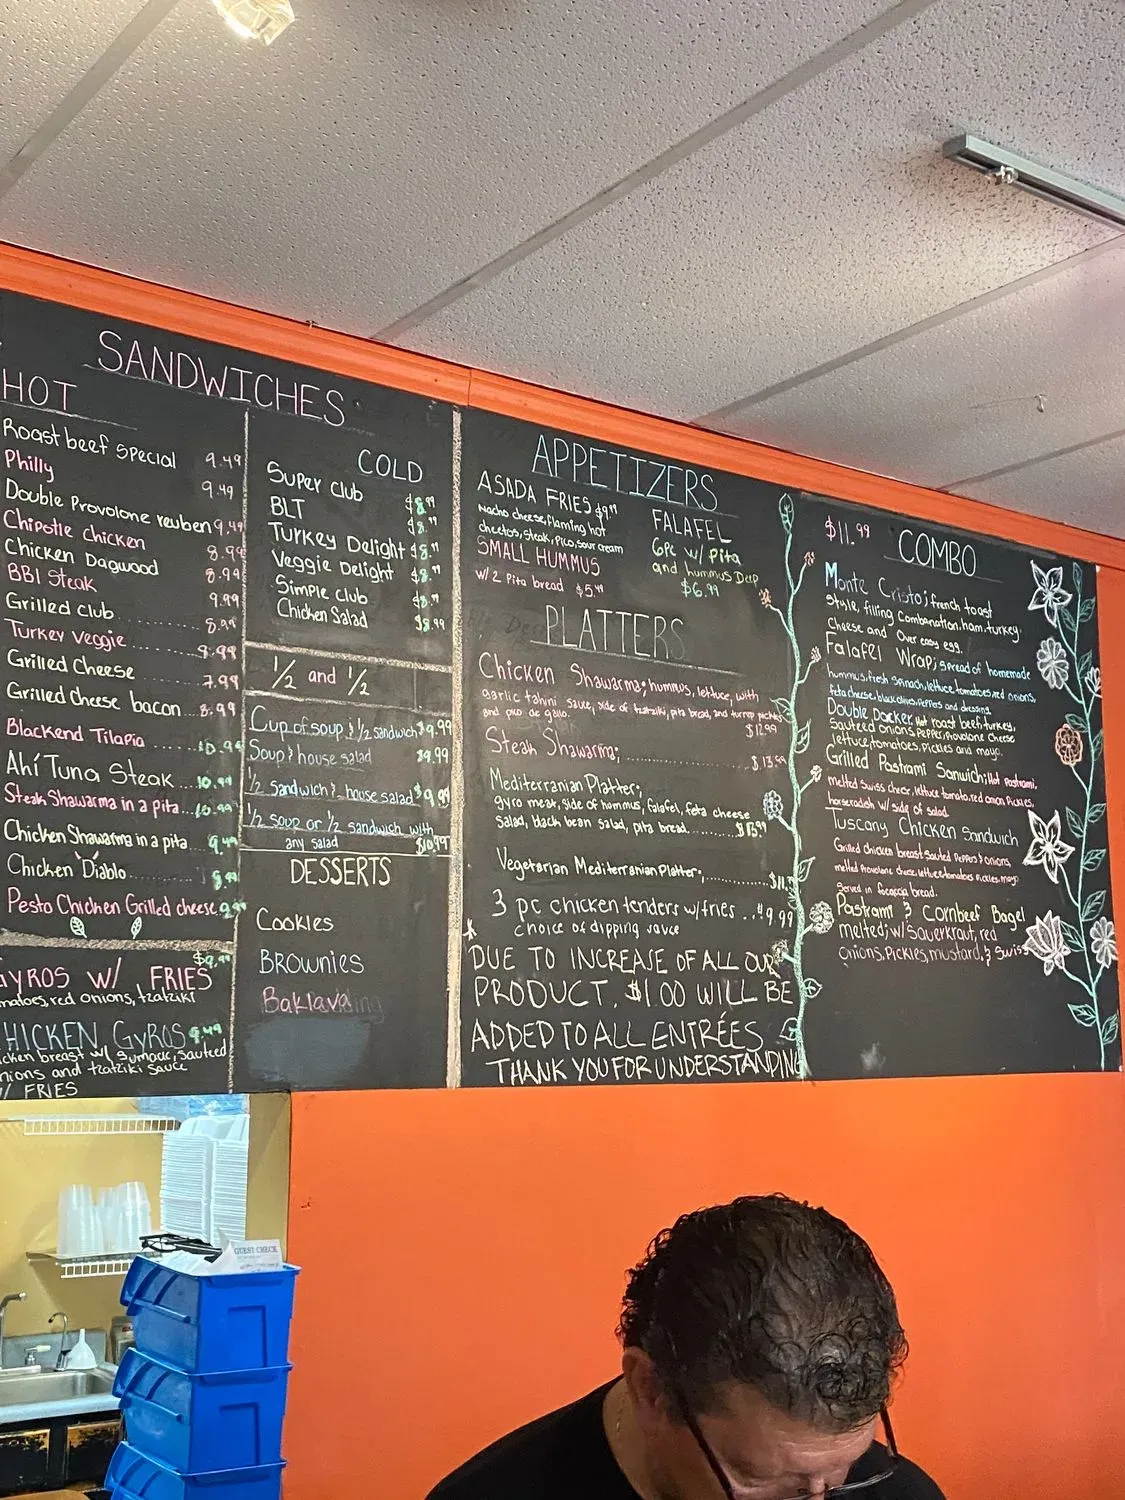 SANDWICHES
HOT
Roast beef special 9.49
Philly 9.49
Double Provolone reuben 9.49
Chipotle Chicken 8.99
Chicken Dagwood 8.99
BBQ Steak 9.99
Grilled club 8.99
Turkey veggie 8.99
Grilled Cheese 7.99
Grilled cheese bacon 8.99
Blackend Tilapia 10.99
Ahí Tuna Steak 10.99
Steak Shawarma in a pita 10.99
Chicken Shawarma in a pita 9.49
Chicken Diablo 8.99
Pesto Chicken Grilled cheese 9.99
$9.99
GYROS W/ FRIES
matoes, red onions, tzatziki
HICKEN GYROS 9.49
cken breast w/ sumac, sauteed
nions and tzatziki sauce
/ FRIES
COLD
Super club $8.99
BLT $8.99
Turkey Delight $8.99
Veggie Delight $8.99
Simple club $8.99
Chicken Salad $8.99
1/2 and 1/2
Cup of soup & 1/2 sandwich $9.99
Soup & house salad $9.99
1/2 sandwich & house salad $9.99
1/2 soup or 1/2 sandwich with
any salad $10.99
DESSERTS
Cookies
Brownies
Baklava
APPETIZERS
ASADA FRIES $9.99
Nacho cheese, flaming hot
cheetos, steak, pico, sour cream
SMALL HUMMUS
w/ 2 Pita bread $5.99
FALAFEL
6pc w/ Pita
and hummus Deep
$6.99
PLATTERS
Chicken Shawarma; hummus, lettuce, with
garlic tahini sauce, side of tzatziki, pita bread, and turnip pickles
and pico de gallo. $12.99
Steak Shawarma; $13.99
Mediterranean Platter;
gyro meat, side of hummus, falafel, feta cheese
salad, black bean salad, pita bread $13.99
Vegetarian Mediterranean Platter;
3 pc chicken tenders w/ fries $9.99
choice of dipping sauce
DUE TO INCREASE OF ALL OUR
PRODUCT, $1.00 WILL BE
ADDED TO ALL ENTRÉES
THANK YOU FOR UNDERSTANDING
$11.99 COMBO
Monte Cristo; french toast
style, filling combonation, ham, turkey,
cheese and over easy egg.
Falafel Wrap; spread of homemade
hummus, fresh spinach, lettuce, tomatoes, red onions,
feta cheese, black olives, peppers and dressing
Double Decker; Hot roast beef, turkey,
sauteed onions, Pepper, Provolone cheese
lettuce, tomatoes, pickles and mayo.
Grilled Pastrami Sanwich; Hot Pastrami,
melted swiss cheese, lettuce, tomato, red onion, pickles,
horseradish w/ side of salad.
Tuscany Chicken Sandwich
Grilled chicken breast sauted peppers & onions,
melted provolone cheese, lettuce, tomatoes, pickles, mayo
served in focaccia bread.
Pastrami & Cornbeef Bagel
melted; w/ Sauerkraut, red
onions, Pickles, mustard, & Swiss
GUEST CHECK